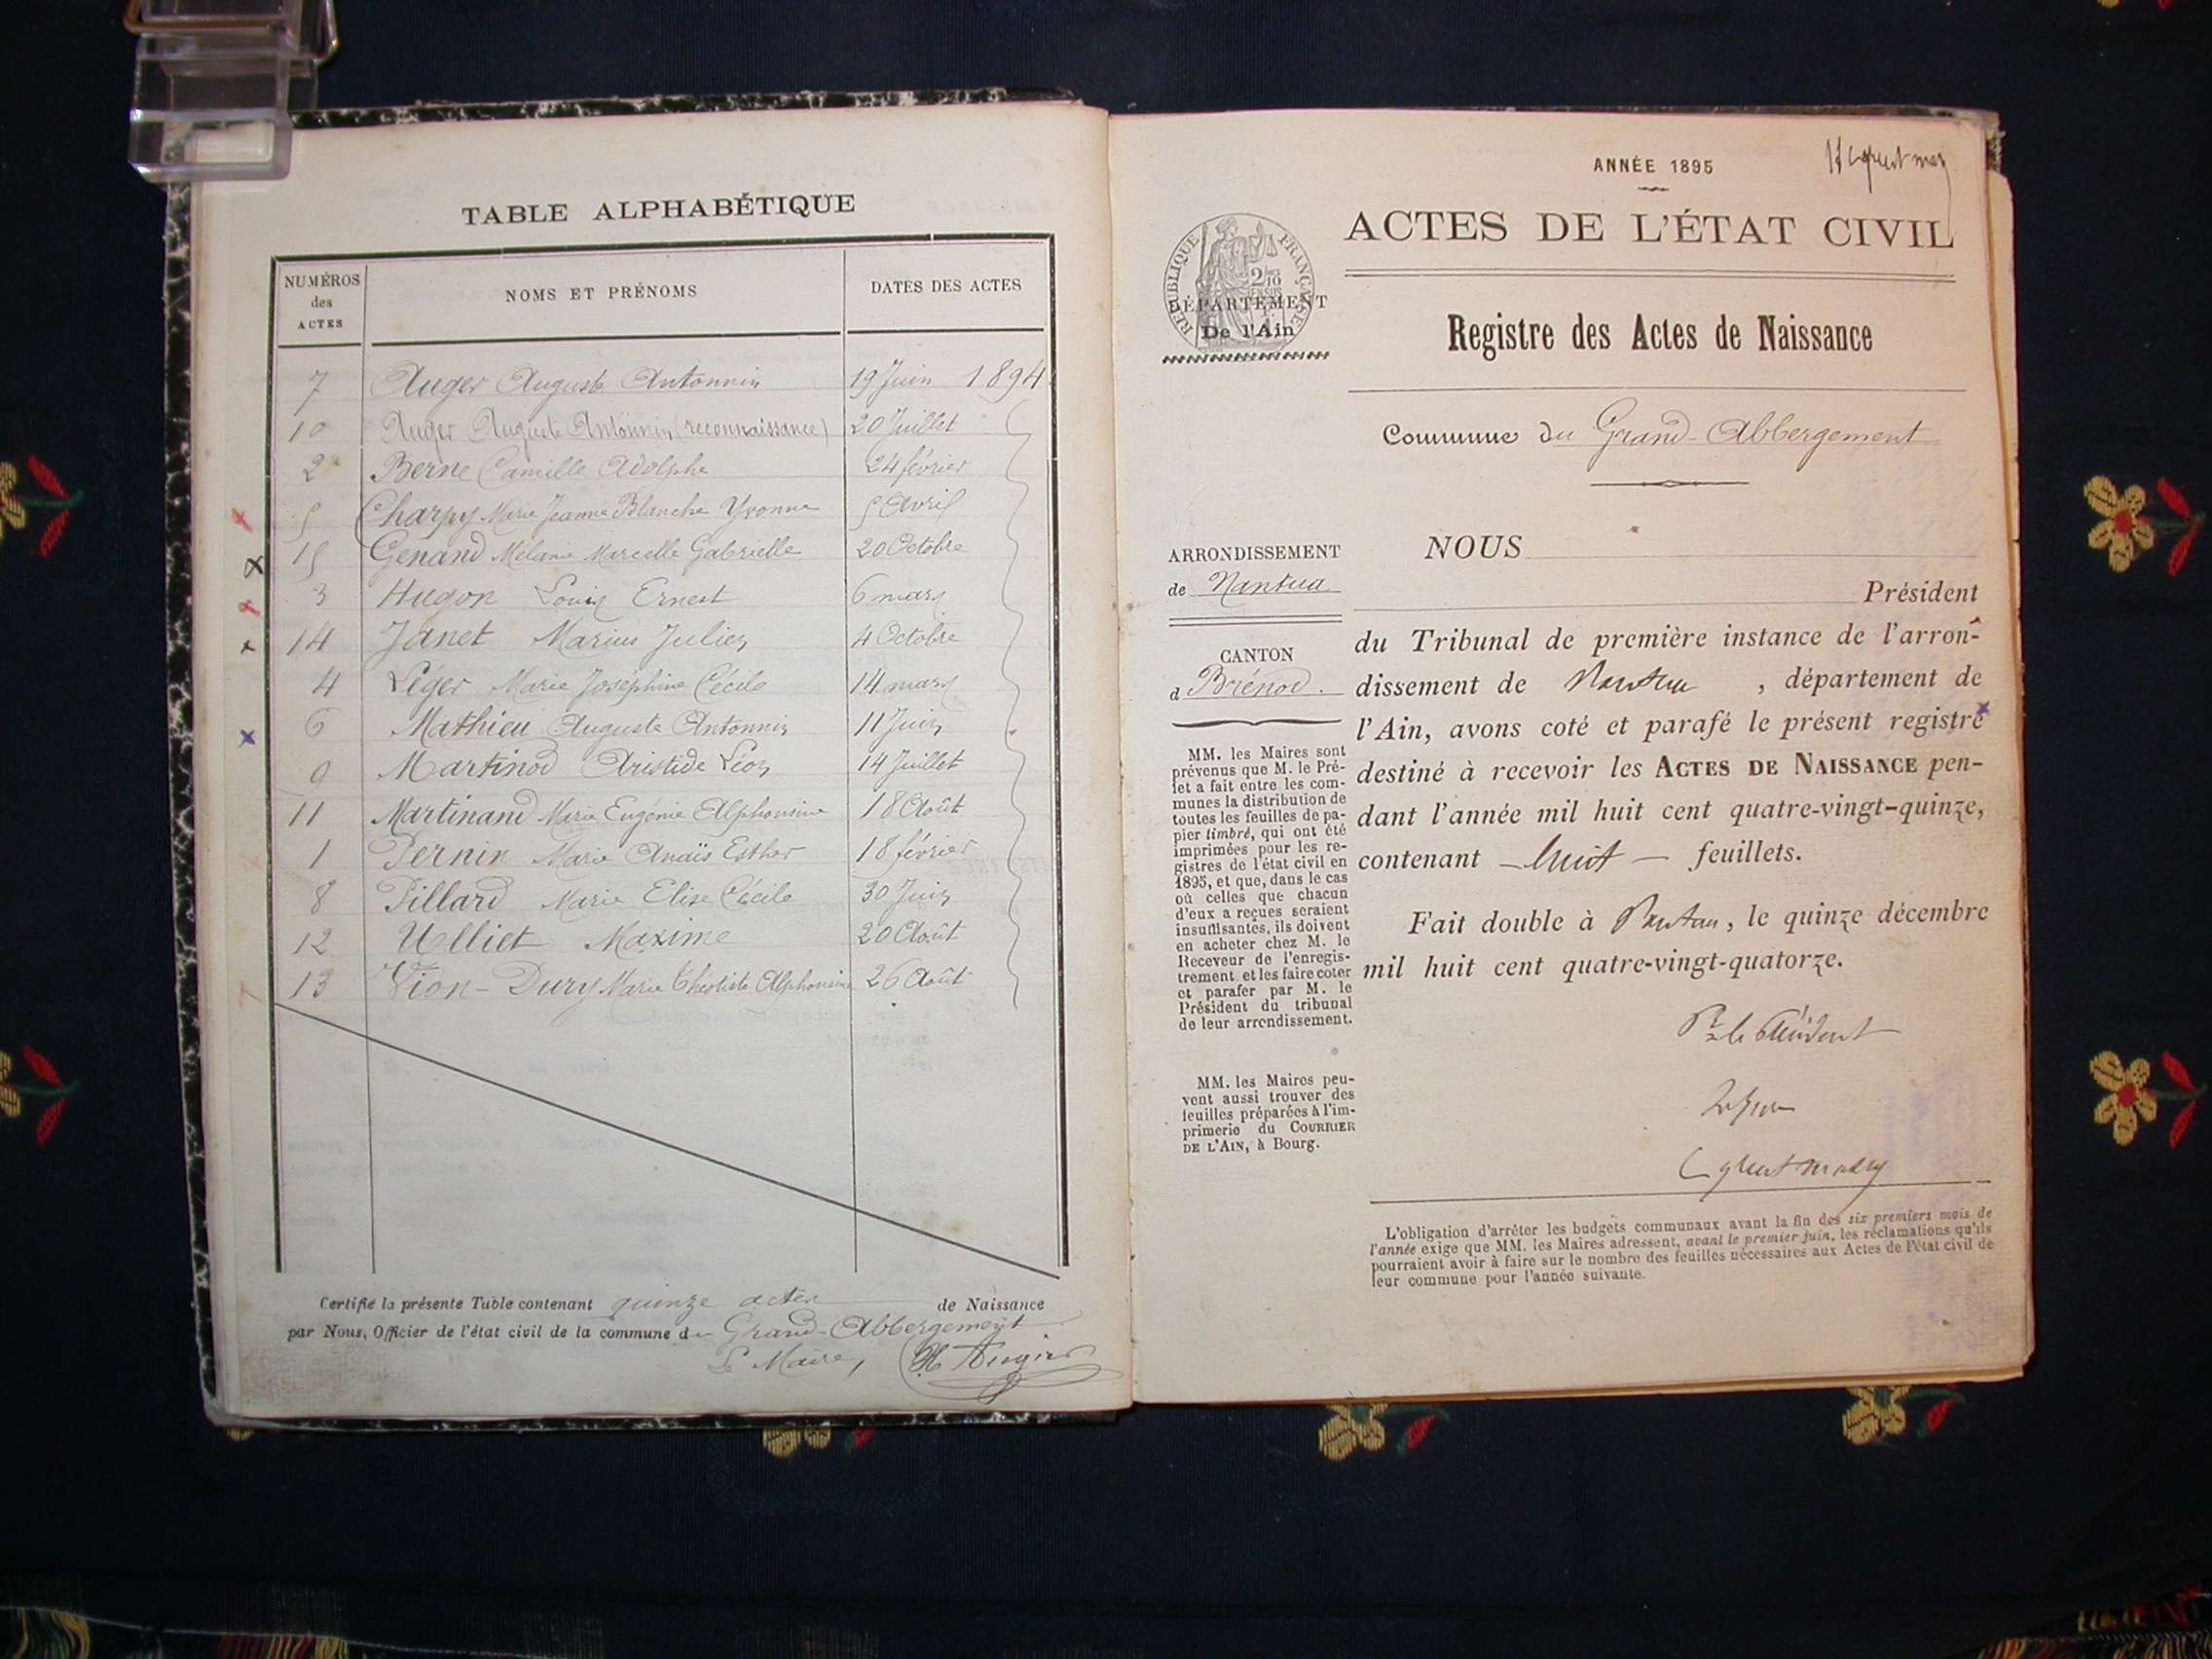 TABLE ALPHABÉTIQUE
NUMÉROS des ACTES
NOMS ET PRÉNOMS
DATES DES ACTES
7 Auger Auguste Antonnin 19 Juin 1894
10 Auger Auguste Antonnin (reconnaissance) 20 Juillet
2 Berne Camille Adolphe 24 février
5 Charpy Marie Jeanne Blanche Yvonne 5 Avril
15 Genand Mélanie Marcelle Gabrielle 20 Octobre
3 Hugon Louis Ernest 6 mars
14 Janet Marius Julien 4 Octobre
4 Léger Marie Joséphine Cécile 14 mars
6 Mathieu Auguste Antonnin 11 Juin
9 Martinod Aristide Léon 14 Juillet
11 Martinand Marie Eugénie Alphonsine 18 Août
1 Pernin Marie Anaïs Esther 18 février
8 Pillard Marie Elise Cécile 30 Juin
12 Ulliet Maxime 20 Août
13 Vion-Dury Marie Théotiste Alphonsine 26 Août
Certifié la présente Table contenant quinze actes de Naissance
par Nous, Officier de l'état civil de la commune du Grand-Abbergement
Le Maire,
ANNÉE 1895
ACTES DE L'ÉTAT CIVIL
RÉPUBLIQUE FRANÇAISE
DÉPARTEMENT
De l'Ain
Registre des Actes de Naissance
Commune du Grand-Abbergement
ARRONDISSEMENT
de Nantua
CANTON
d Brénod.
MM. les Maires sont
prévenus que M. le Pré-
fet a fait entre les com-
munes la distribution de
toutes les feuilles de pa-
pier timbré, qui ont été
imprimées pour les re-
gistres de l'état civil en
1895, et que, dans le cas
où celles que chacun
d'eux a reçues seraient
insuffisantes, ils doivent
en acheter chez M. le
Receveur de l'enregis-
trement et les faire coter
et parafer par M. le
Président du tribunal
de leur arrondissement.
MM. les Maires peu-
vent aussi trouver des
feuilles préparées à l'im-
primerie du COURRIER
DE L'AIN, à Bourg.
NOUS
Président
du Tribunal de première instance de l'arron-
dissement de Nantua, département de
l'Ain, avons coté et parafé le présent registre
destiné à recevoir les ACTES DE NAISSANCE pen-
dant l'année mil huit cent quatre-vingt-quinze,
contenant — huit — feuillets.
Fait double à Nantua, le quinze décembre
mil huit cent quatre-vingt-quatorze.
Pr le Président
L'obligation d'arrêter les budgets communaux avant la fin des six premiers mois de
l'année exige que MM. les Maires adressent, avant le premier juin, les réclamations qu'ils
pourraient avoir à faire sur le nombre des feuilles nécessaires aux Actes de l'état civil de
leur commune pour l'année suivante.